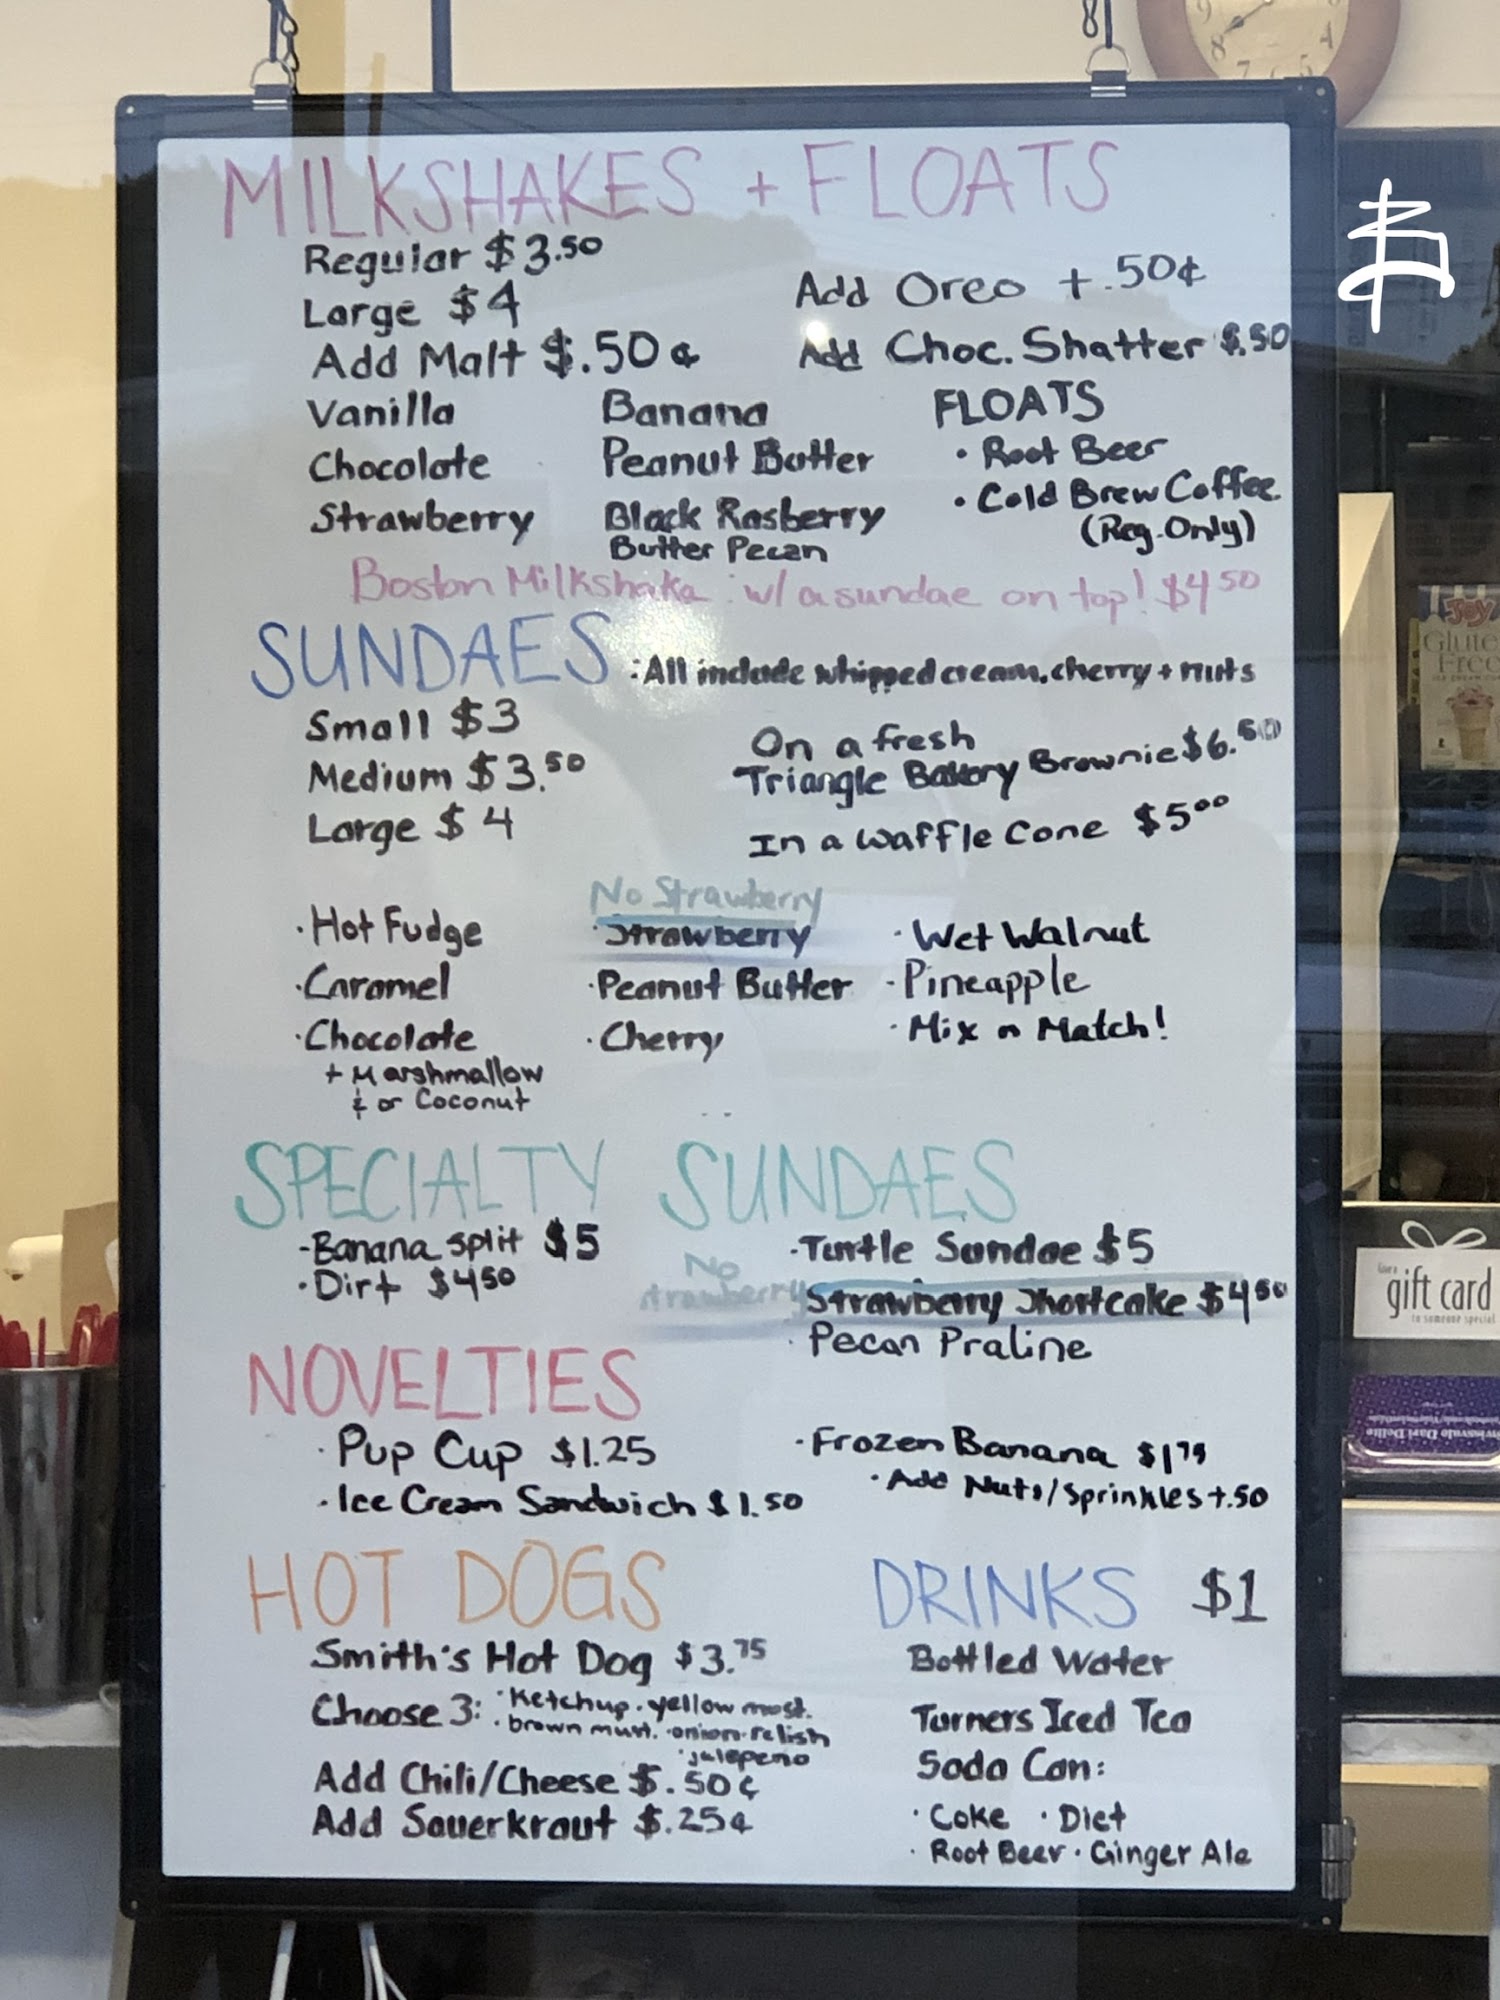 MILKSHAKES + FLOATS
Regular $3.50
Large $4
Add Malt $.50¢
Add Oreo +.50¢
Add Choc. Shatter $.50
Vanilla
Chocolate
Strawberry
Banana
Peanut Butter
Black Rasberry
Butter Pecan
FLOATS
· Root Beer
· Cold Brew Coffee
(Reg. Only)
Boston Milkshake : w/ a sundae on top! $4.50
SUNDAES :All include whipped cream, cherry + nuts
Small $3
Medium $3.50
Large $4
On a fresh
Triangle Bakery Brownie $6.50
In a Waffle Cone $5.00
·Hot Fudge
·Caramel
·Chocolate
+ Marshmallow
& or Coconut
No Strawberry
·Strawberry
·Peanut Butter
·Cherry
·Wet Walnut
·Pineapple
·Mix n Match!
SPECIALTY SUNDAES
-Banana Split $5
·Dirt $4.50
·Turtle Sundae $5
No
strawberry
Strawberry Shortcake $4.50
·Pecan Praline
NOVELTIES
·Pup Cup $1.25
·Ice Cream Sandwich $1.50
·Frozen Banana $1.75
·Add Nuts/Sprinkles +.50
HOT DOGS
Smith's Hot Dog $3.75
Choose 3: ·Ketchup ·yellow must.
·brown must. ·onion ·relish
·jalepeno
Add Chili/Cheese $.50¢
Add Sauerkraut $.25¢
DRINKS $1
Bottled Water
Turners Iced Tea
Soda Can:
·Coke ·Diet
·Root Beer ·Ginger Ale
9
8
7
6
5
4
Joy
Glute
Free
gift card
to someone special
Swissvale Dari Delite